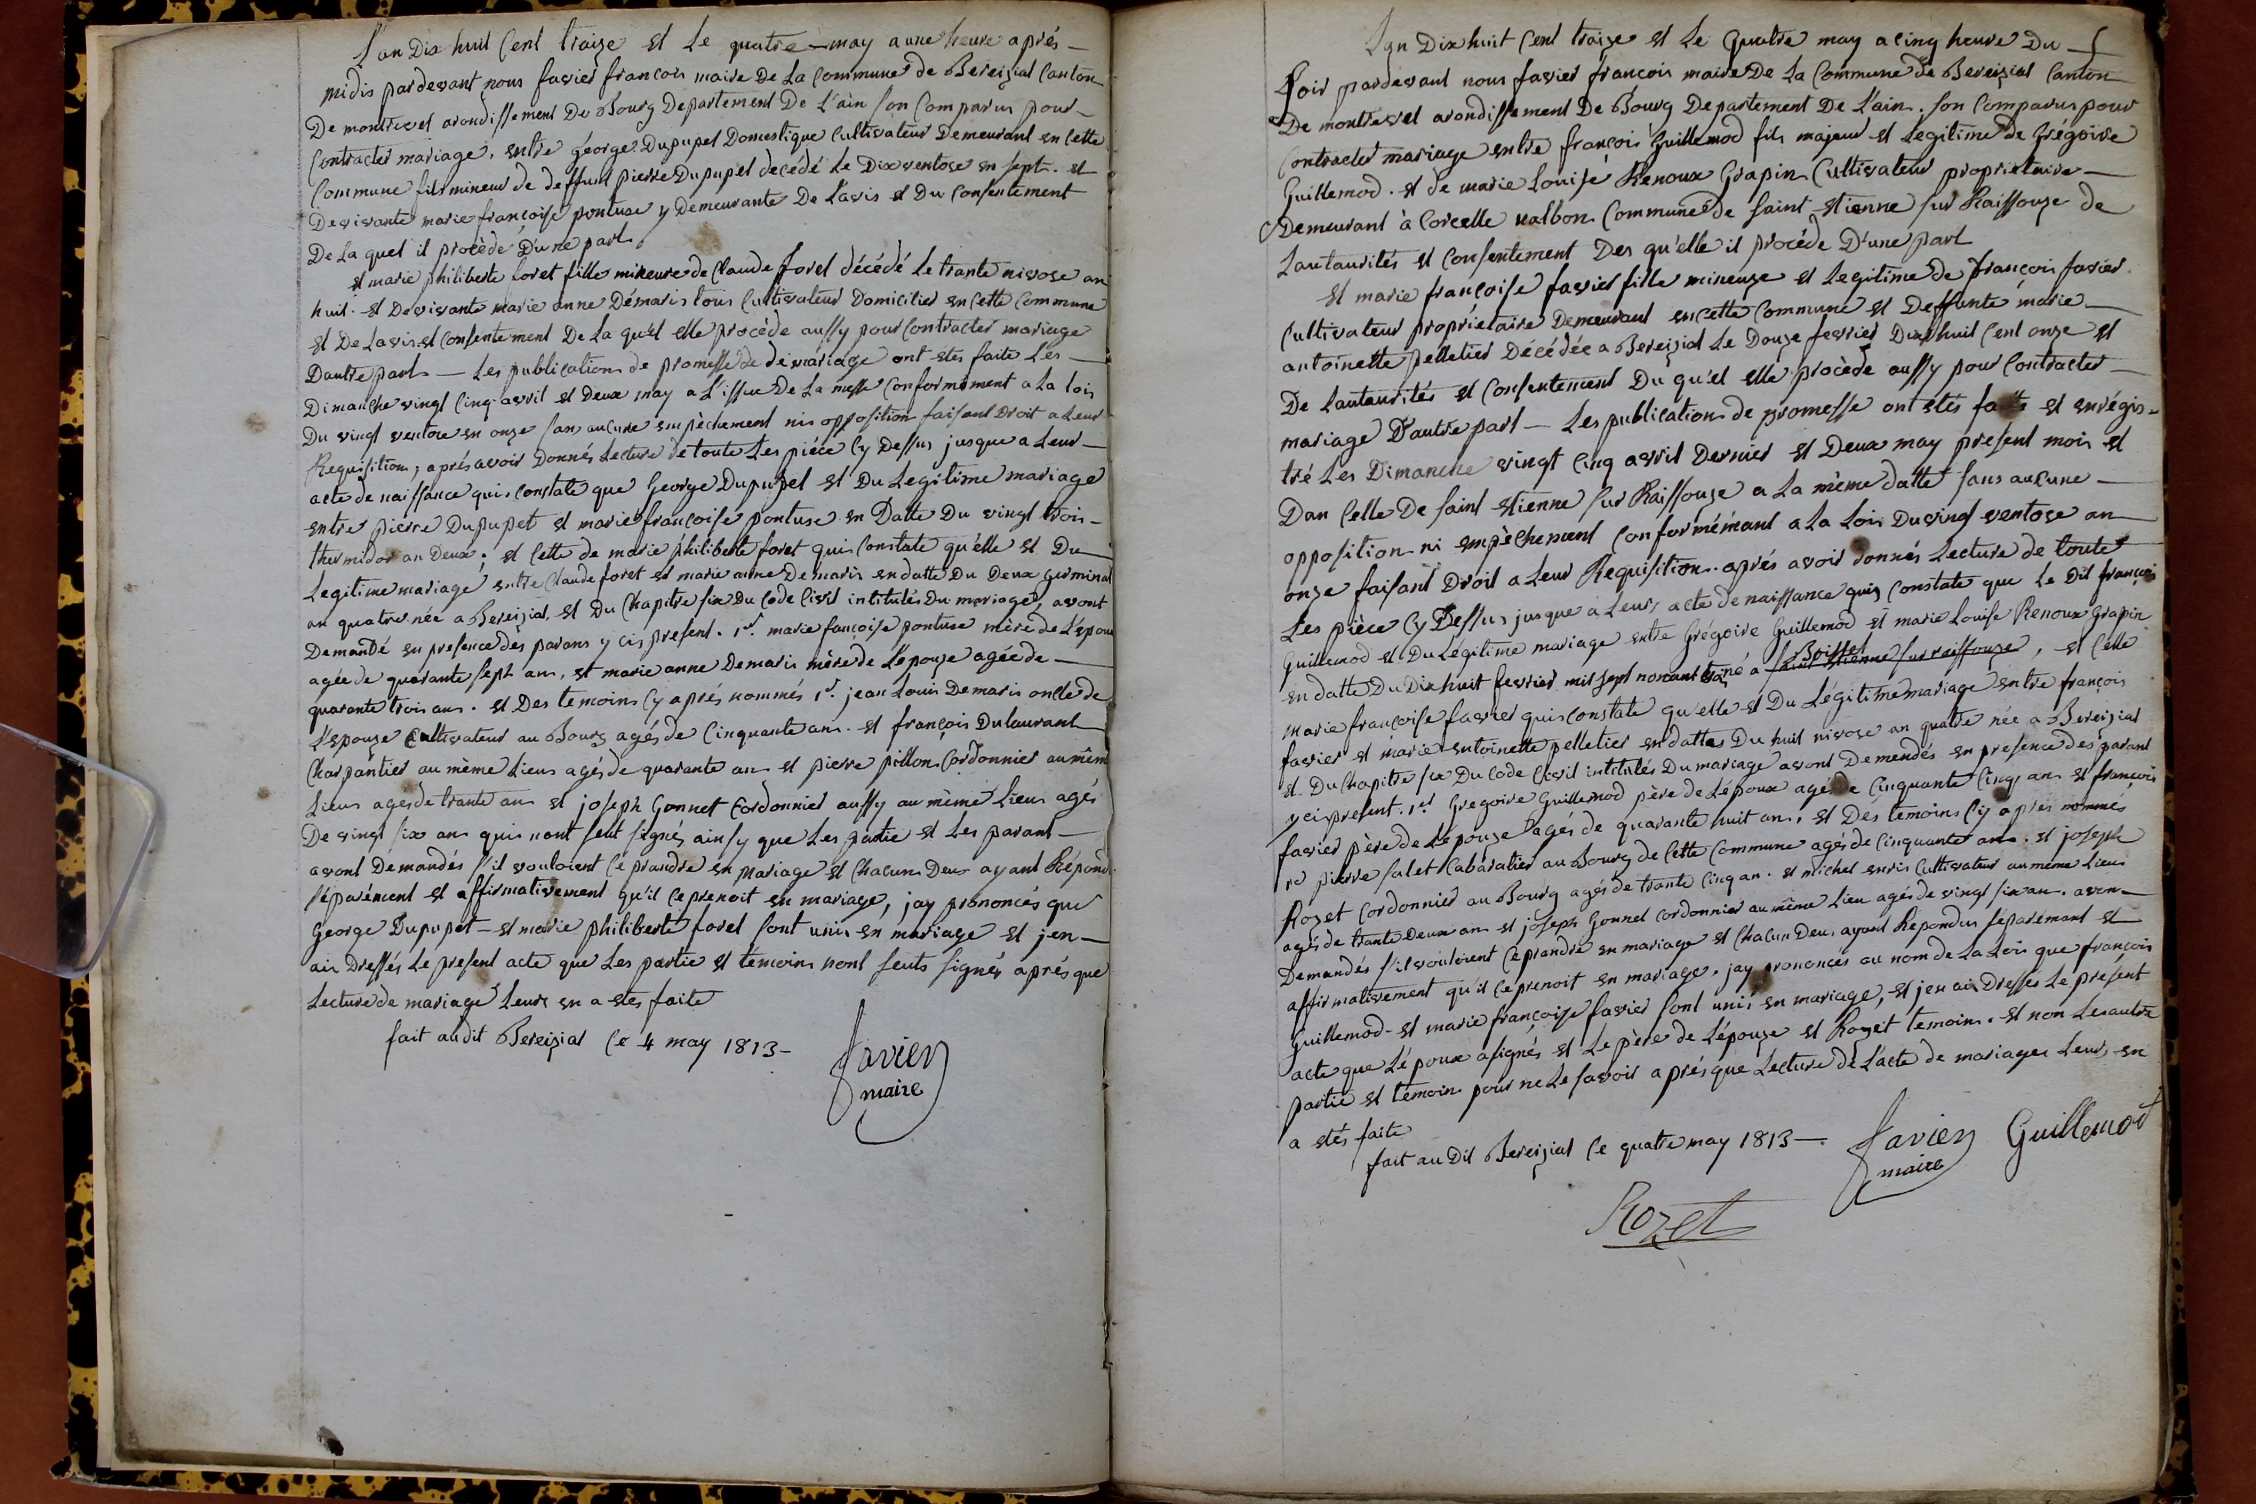 L'an Dix huit Cent traize et Le quatre may a une heure après
midis pardevant nous favier françois maire De La Commune de Bereiziat Canton
De montrevel arondissement De Bourg Departement De L'ain son Comparus pour
Contracter mariage. entre géorge Dupupet Domestique Cultivateur Demeurant en Cette
Commune fils mineur de deffunt pierre Dupupet decedé Le Dix ventose en sept. et
De vivante marie françoise pontuse y Demeurante De Lavis et Du Consentement
De La quel il procède D'une part
et marie philiberte foret fille mineure de Claude foret décédé Le trante nivose an
huit. et De vivante marie anne Démaris tous Cultivateur Domicilier en Cette Commune
et De Lavis et Consentement De La qu'el elle procède aussy pour Contracter mariage
Dautre part — Les publications de promesse de de mariage ont etes faite Les
Dimanche vingt Cinq avril et Deux may a L'issue De La messe Conformement a La lois
Du vingt ventose en onze sans aucune empèchement nis opposition faisant Droit a Leur
Requisition, après avoir Donnés Lecture de toute Les pièce Cy Dessus jusque a Leur
acte de naissance quis constate que George Dupupet et Du Legitime mariage
entre pierre Dupupet et marie françoise pontuse en Datte Du vingt trois
thermidor an Deux; et Cette de marie philiberte foret quis Constate qu'elle et Du
Legitime mariage entre Claude foret et marie anne Demaris en datte Du Deux germinal
an quatre née a Bereiziat. et Du Chapitre six Du Code Civil intitulés Du mariage, avont
Demandé en presence dès parans y cis present. 1er. marie fançoise pontuse mère de L'epoux
agée de quarante sept ans, et marie anne Demaris mère de L'epouze agée de
quarante trois ans. et Des temoins Cy après nommés 1er. jean Louis Demaris oncle de
L'epouze Cultivateur au Bourg agés de Cinquante ans. et françois Dulaurant
Charpantier au même Lieus agés de quarante ans et pierre pillon Cordonnier au même
Lieus agés de trante ans et joseph Gonnet Cordonnier aussy au même Lieus agés
De vingt six ans quis nont seut signés ainsy que Les partie et Les parant
avont Demandés s'il vouloient Ce prandre en mariage et Chacuns Deux ayant Répondu
séparément et affirmativement qu'il Ce prenoit en mariage, jay prononcés que
George Dupupet — et marie philiberte foret sont unis en mariage et jen
ais Dressés Le present acte que Les partie et témoins nont seuts signés après que
Lecture de mariage Leurs en a etes faite
fait audit Bereiziat Ce 4 may 1813 —
favier
maire
Lan Dix huit Cent traize et Le Quatre may a cinq heure Du
soir pardevant nous favier françois maire De La Commune de Bereiziat Canton
De montrevel arondissement De Bourg Departement De L'ain. son Comparus pour
Contracter mariage entre françois Guillemod fils majeur et Legitime de Grégoire
Guillemod. et de marie Louise Renoux Grapin Cultivateur proprietaire
Demeurant à Corcelle valbon Commune de saint etienne sur Raissouze de
Lautaurités et Consentement Des qu'elle il procède D'une part
et marie françoise favier fille mineuze et Legitime de françois favier
Cultivateur propriétaire Demeurant en cette Commune et Deffunte marie
antoinette pelletier Décédée a Bereiziat Le Douze fevrier Dix huit Cent onze et
De Lautaurités et Consentement Du qu'el elle procède aussy pour Contracter
mariage D'autre part — Les publications de promesse ont etés faite et enrégis-
tré Les Dimanche vingt Cinq avril Dernier et Deux may present mois et
Dan Celle De saint etienne sur Raissouze a La même datte sans aucune
opposition ni empèchement Conformémant a La Lois Du vingt ventose an
onze faisant Droit a Leur Requisition. après avoir donnés Lecture de toute
Les pièce Cy Dessus jusque à Leurs acte de naissance quis Constate que Le Dit françois
Guillemod et Du Légitime mariage entre Grégoire Guillemod et marie Louise Renoux Grapin
en datte Du Dix huit fevrier mil sept nonant trois né à saint etienne sur raissouze Boissey, et Celle
Marie françoise favier quis constate qu'elle et Du Légitime mariage entre françois
favier et marie entoinette pelletier en datte Du huit nivose an quatre née a Bereiziat
et. Du Chapitre six Du Code Civil intitulés Du mariage avont Demendés en presence des parant
y cis present. 1er Gregoire Guillemod père de Lépoux agés de Cinquante Cinq ans et françois
favier père de Lépouze agés de quarante huit ans, et Dés temoins Cy après nommés
pierre salet Cabaratier au Bourg de Cette Commune agés de Cinquante ans. et joseph
Rozet Cordonnier au Bourg agés de trante Cinq an. et michel enris Cultivateur au même Lieu
agés de trante Deux ans et joseph Gonnet Cordonnier au même Lieu agés de vingt six an. avon
Demandés s'il vouloient Ce prandre en mariage et Chacun Deus ayant Répondus separémant et
affirmativement qu'il Ce prenoit en mariage. jay prononcés au nom de La Lois que françois
Guillemod — et marie françoise favier sont unis en mariage, et jen ais Dressés Le présent
acte que L'époux a signés et Le père de L'épouze et Rozet temoins. et non Les autre
partie et témoin pour ne Le savoir après que Lecture de L'acte de mariages Leurs en
a etés faite
fait au Dit Bereiziat Ce quatre may 1813 —
favier
maire
Guillemod
Rozet